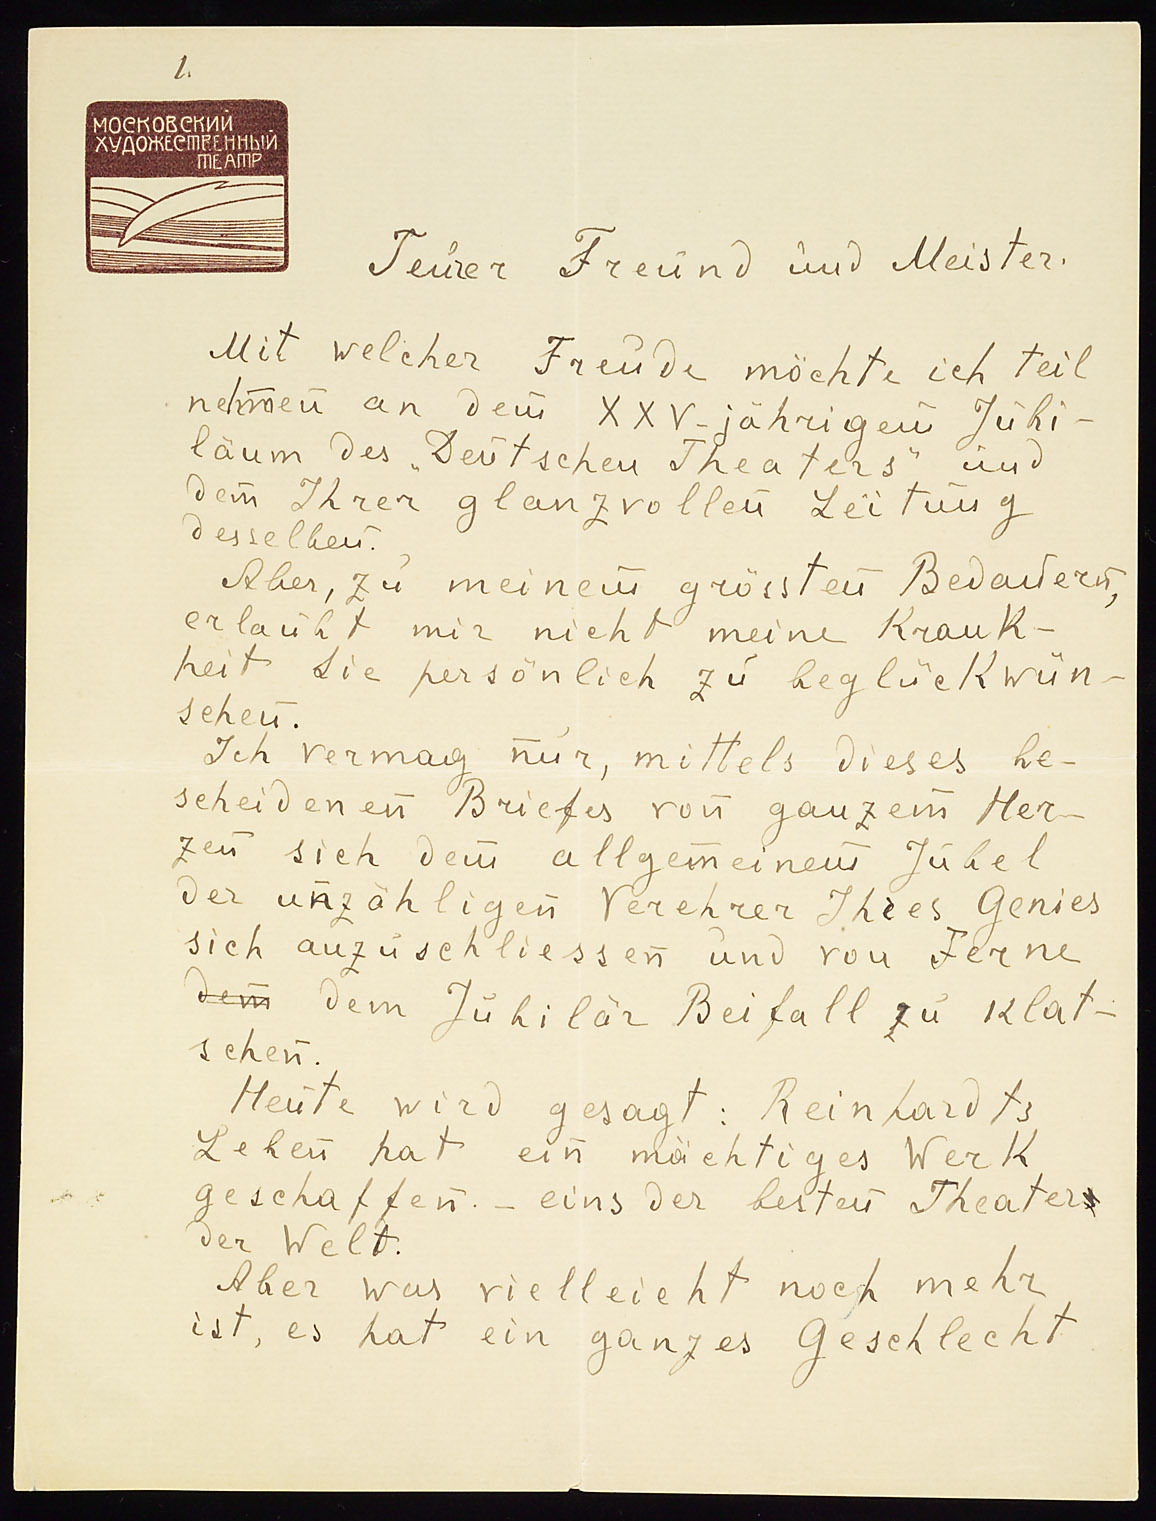 1.
МОСКОВСКИЙ
ХУДОЖЕСТВЕННЫЙ
ТЕАТР
Teurer Freund und Meister.
Mit welcher Freude möchte ich teil
nehmen an dem XXV-jährigem Jubi-
läum des „Deutschen Theaters" und
dem Ihrer glanzvollen Leitung
desselben.
Aber, zu meinem grössten Bedauern,
erlaubt mir nicht meine Krank-
heit Sie persönlich zu beglückwün-
schen.
Ich vermag nur, mittels dieses be-
scheidenen Briefes von ganzem Her-
zen sich dem allgemeinem Jubel
der unzähligen Verehrer Ihres Genies
sich anzuschliessen und von Ferne
dem dem Jubilär Beifall zu klat-
schen.
Heute wird gesagt: Reinhardts
Leben hat ein mächtiges Werk
geschaffen. – eins der besten Theater
der Welt.
Aber was vielleicht noch mehr
ist, es hat ein ganzes Geschlecht